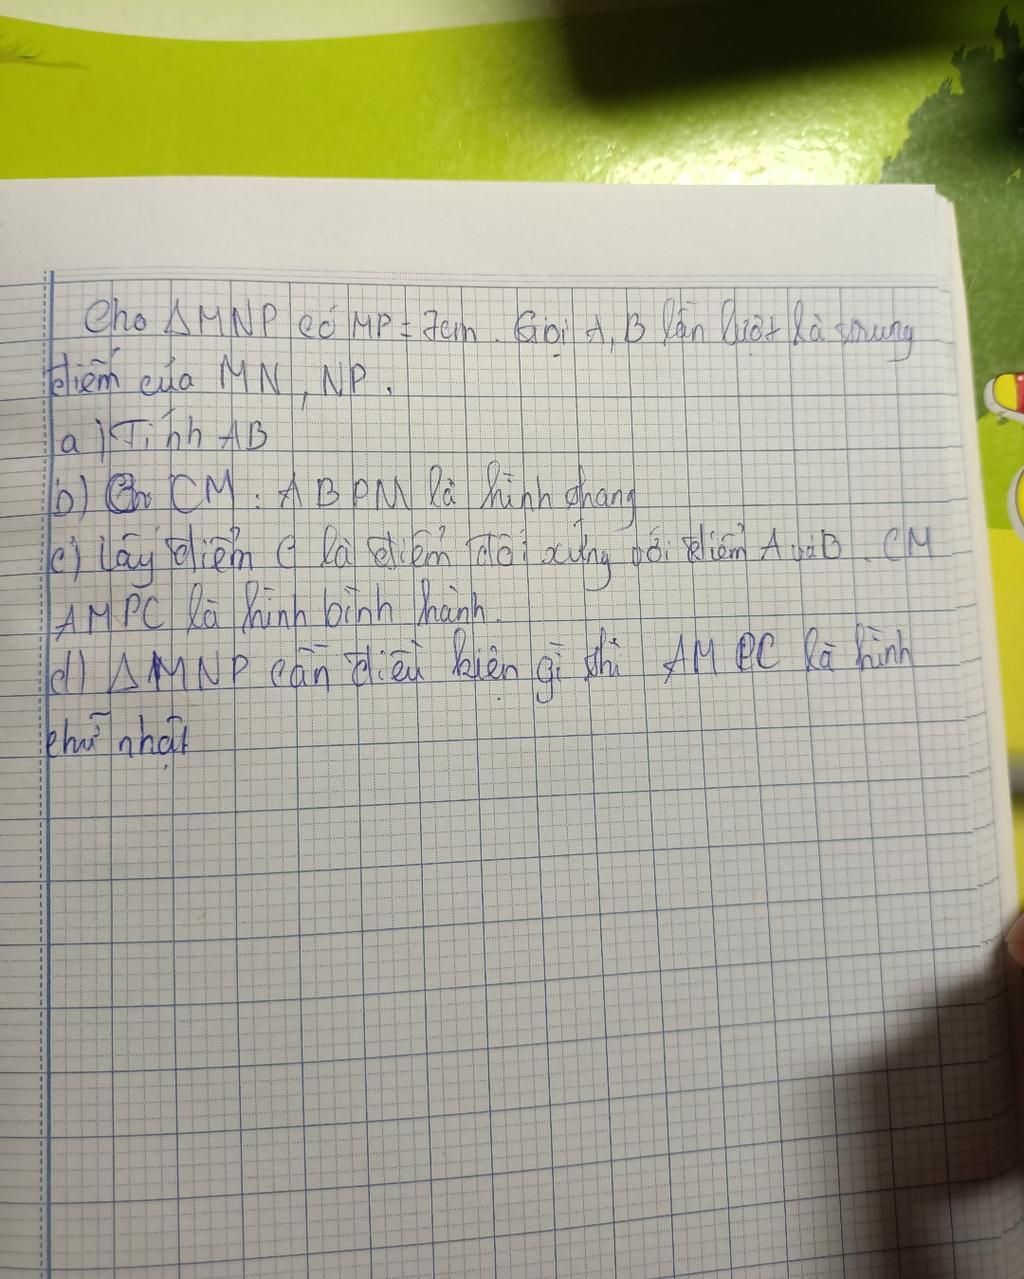 Cho ΔMNP có MP = 7cm. Gọi A, B lần lượt là trung
điểm của MN, NP.
a) Tính AB
b) CM: ABPM là hình thang
c) Lấy điểm C là điểm đối xứng với điểm A và B. CM
AMPC là hình bình hành.
d) ΔMNP cần điều kiện gì thì AMPC là hình
chữ nhật